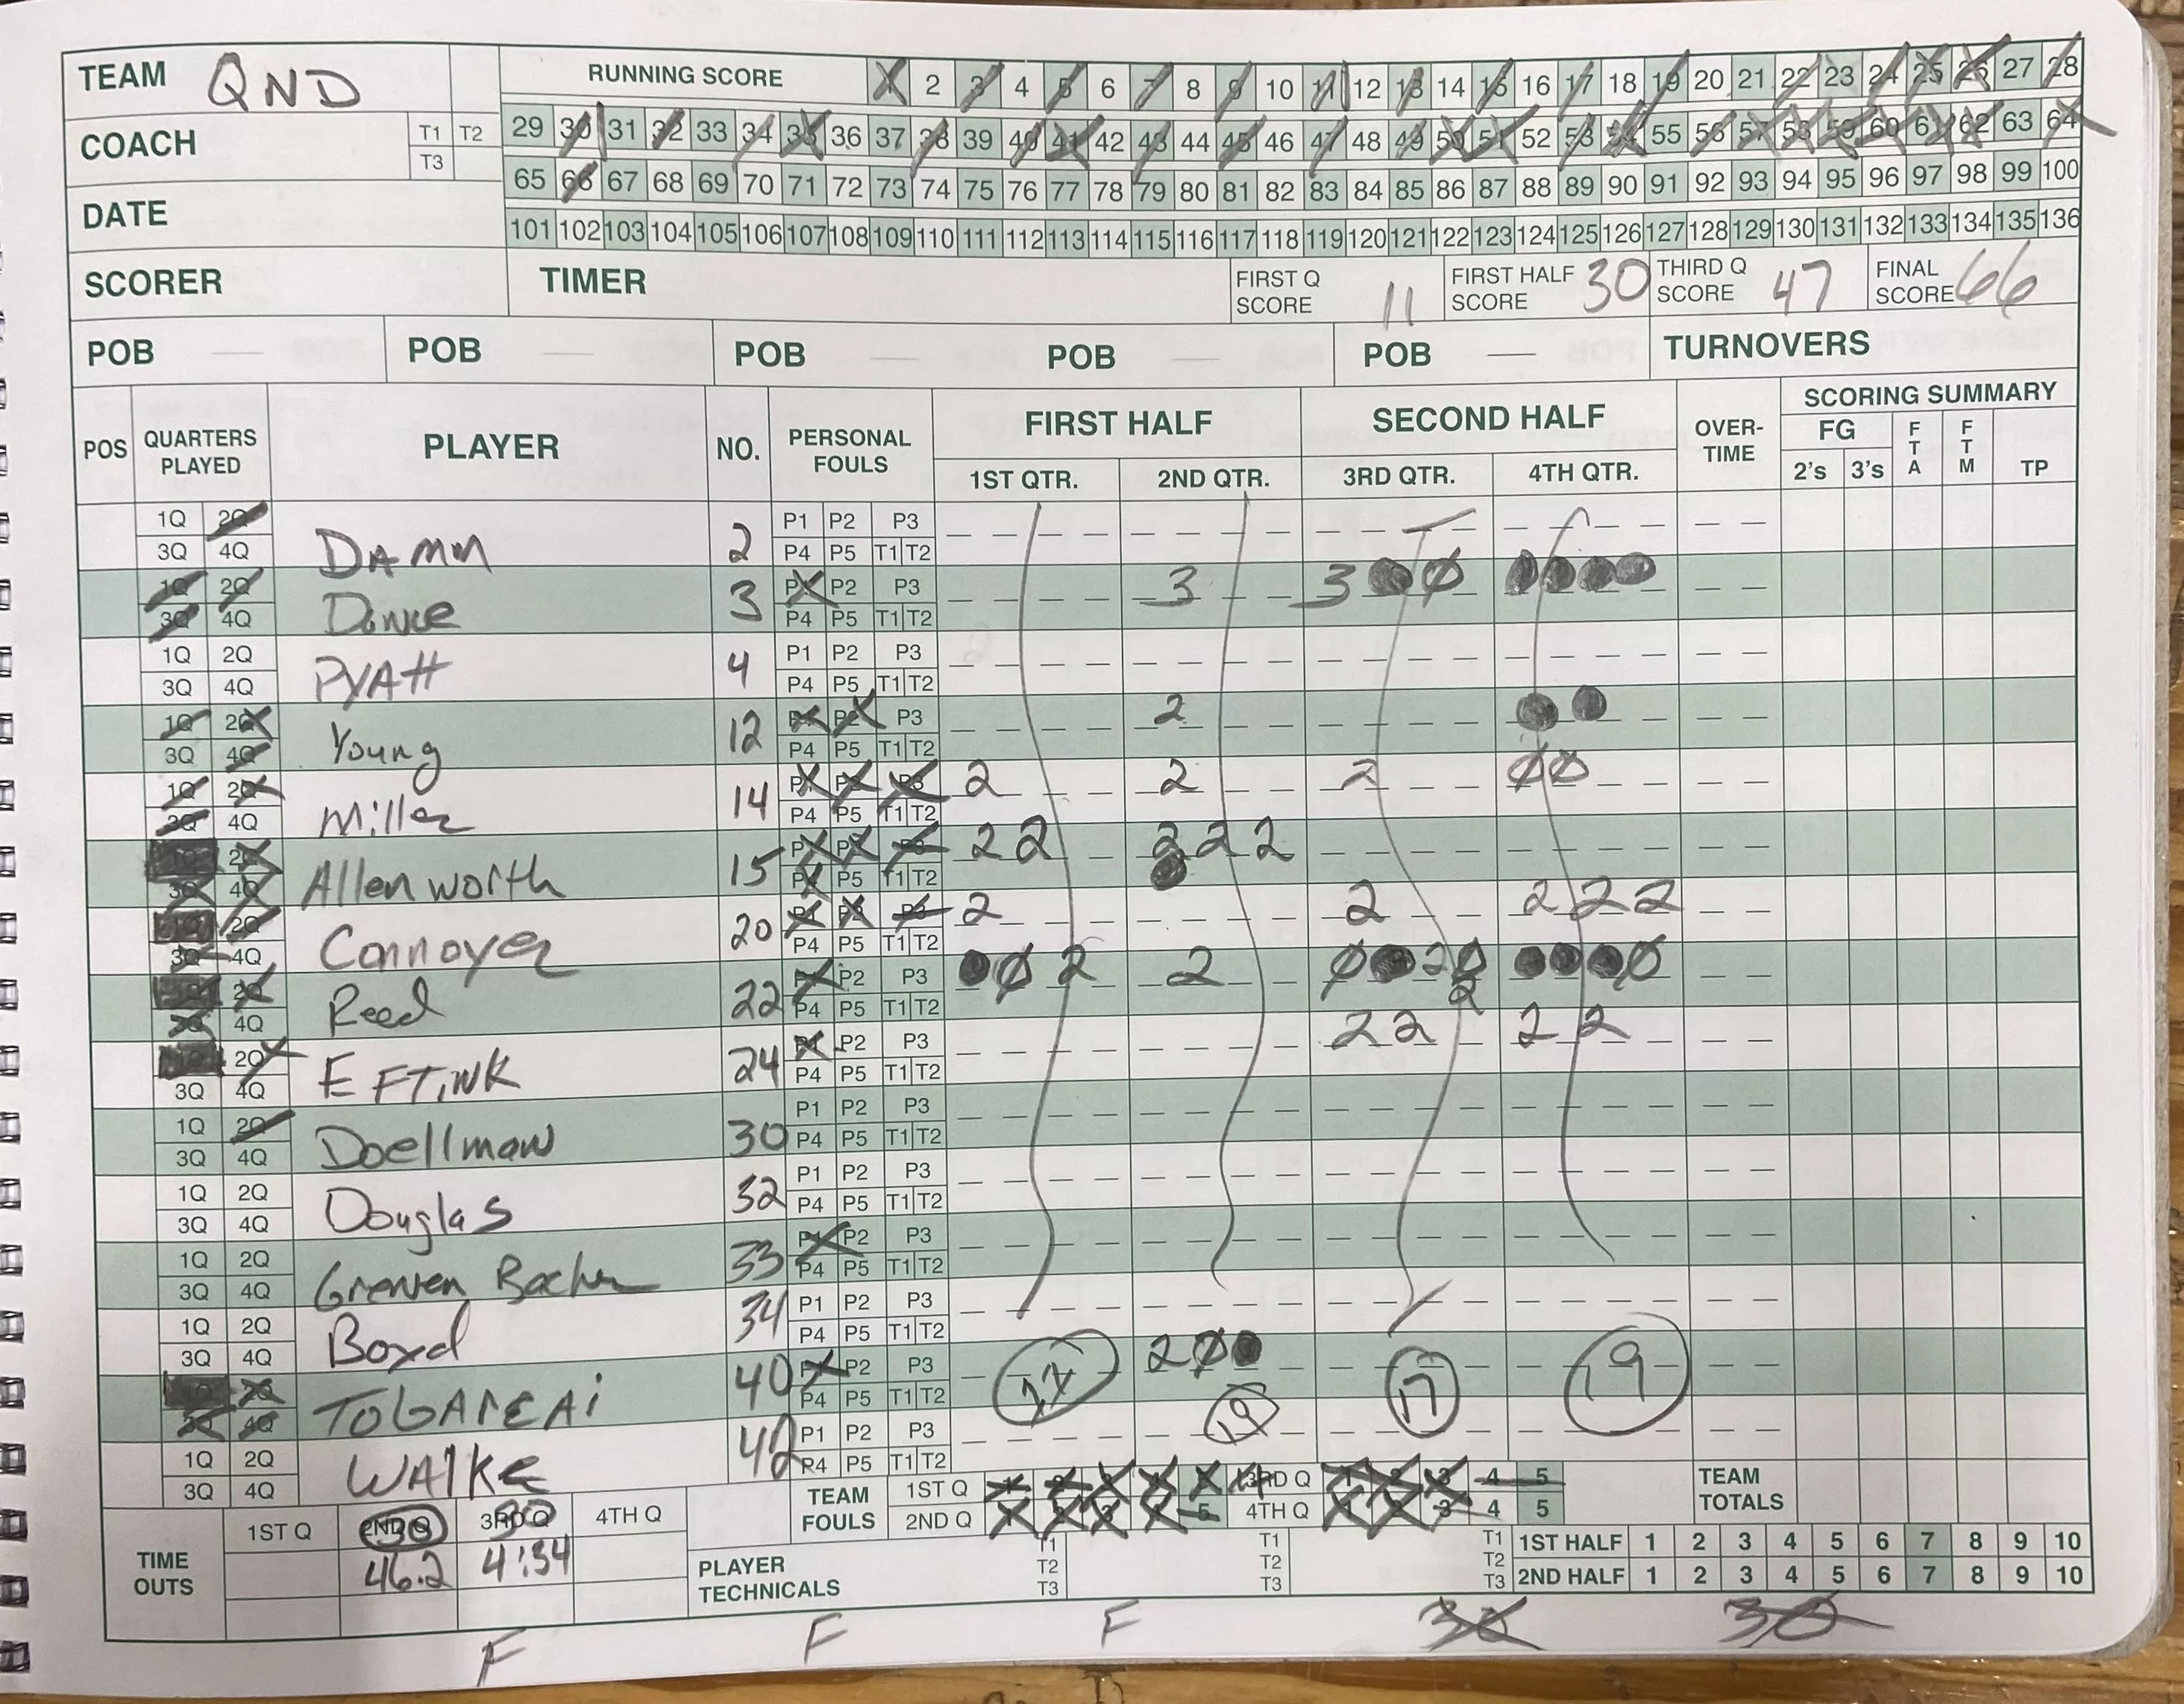 TEAM QND RUNNING SCORE 1 2 3 4 5 6 7 8 9 10 11 12 13 14 15 16 17 18 19 20 21 22 23 24 25 26 27 28
COACH T1 T2 T3 29 30 31 32 33 34 35 36 37 38 39 40 41 42 43 44 45 46 47 48 49 50 51 52 53 54 55 56 57 58 59 60 61 62 63 64
65 66 67 68 69 70 71 72 73 74 75 76 77 78 79 80 81 82 83 84 85 86 87 88 89 90 91 92 93 94 95 96 97 98 99 100
DATE
101 102 103 104 105 106 107 108 109 110 111 112 113 114 115 116 117 118 119 120 121 122 123 124 125 126 127 128 129 130 131 132 133 134 135 136
SCORER TIMER FIRST Q SCORE 11 FIRST HALF SCORE 30 THIRD Q SCORE 47 FINAL SCORE 66
POB — POB — POB — POB — POB — TURNOVERS
POS QUARTERS PLAYED PLAYER NO. PERSONAL FOULS FIRST HALF SECOND HALF OVER-TIME SCORING SUMMARY
1ST QTR. 2ND QTR. 3RD QTR. 4TH QTR. FG 2's 3's FTA FTM TP
1Q 2Q 3Q 4Q DAMM 2 P1 P2 P3 P4 P5 T1 T2
1Q 2Q 3Q 4Q 3 P1 P2 P3 P4 P5 T1 T2 3 3
1Q 2Q 3Q 4Q PYAtt 4 P1 P2 P3 P4 P5 T1 T2
1Q 2Q 3Q 4Q Young 12 P1 P2 P3 P4 P5 T1 T2 2
1Q 2Q 3Q 4Q Miller 14 P1 P2 P3 P4 P5 T1 T2 2 2 2
1Q 2Q 3Q 4Q Allenworth 15 P1 P2 P3 P4 P5 T1 T2 2 2 2 2 2
1Q 2Q 3Q 4Q Connoyer 20 P1 P2 P3 P4 P5 T1 T2 2 2 2 2 2
1Q 2Q 3Q 4Q Reed 22 P1 P2 P3 P4 P5 T1 T2 2 2 2 2
1Q 2Q 3Q 4Q EFTiNK 24 P1 P2 P3 P4 P5 T1 T2 2 2 2 2
1Q 2Q 3Q 4Q Doellman 30 P1 P2 P3 P4 P5 T1 T2
1Q 2Q 3Q 4Q Douglas 32 P1 P2 P3 P4 P5 T1 T2
1Q 2Q 3Q 4Q 33 P1 P2 P3 P4 P5 T1 T2
1Q 2Q 3Q 4Q Boyd 34 P1 P2 P3 P4 P5 T1 T2
1Q 2Q 3Q 4Q 40 P1 P2 P3 P4 P5 T1 T2 2 19 17 19
1Q 2Q 3Q 4Q WAlKE 42 P1 P2 P3 P4 P5 T1 T2
TEAM FOULS 1ST Q 1 2 3 4 5 3RD Q 1 2 3 4 5 TEAM TOTALS
2ND Q 1 2 3 4 5 4TH Q 1 2 3 4 5
TIME OUTS 1ST Q 2ND Q 30 3RD Q 30 4TH Q
46.2 4:34
PLAYER TECHNICALS T1 T2 T3 T1 T2 T3 T1 T2 T3 1ST HALF 1 2 3 4 5 6 7 8 9 10
2ND HALF 1 2 3 4 5 6 7 8 9 10
F F F 30 30